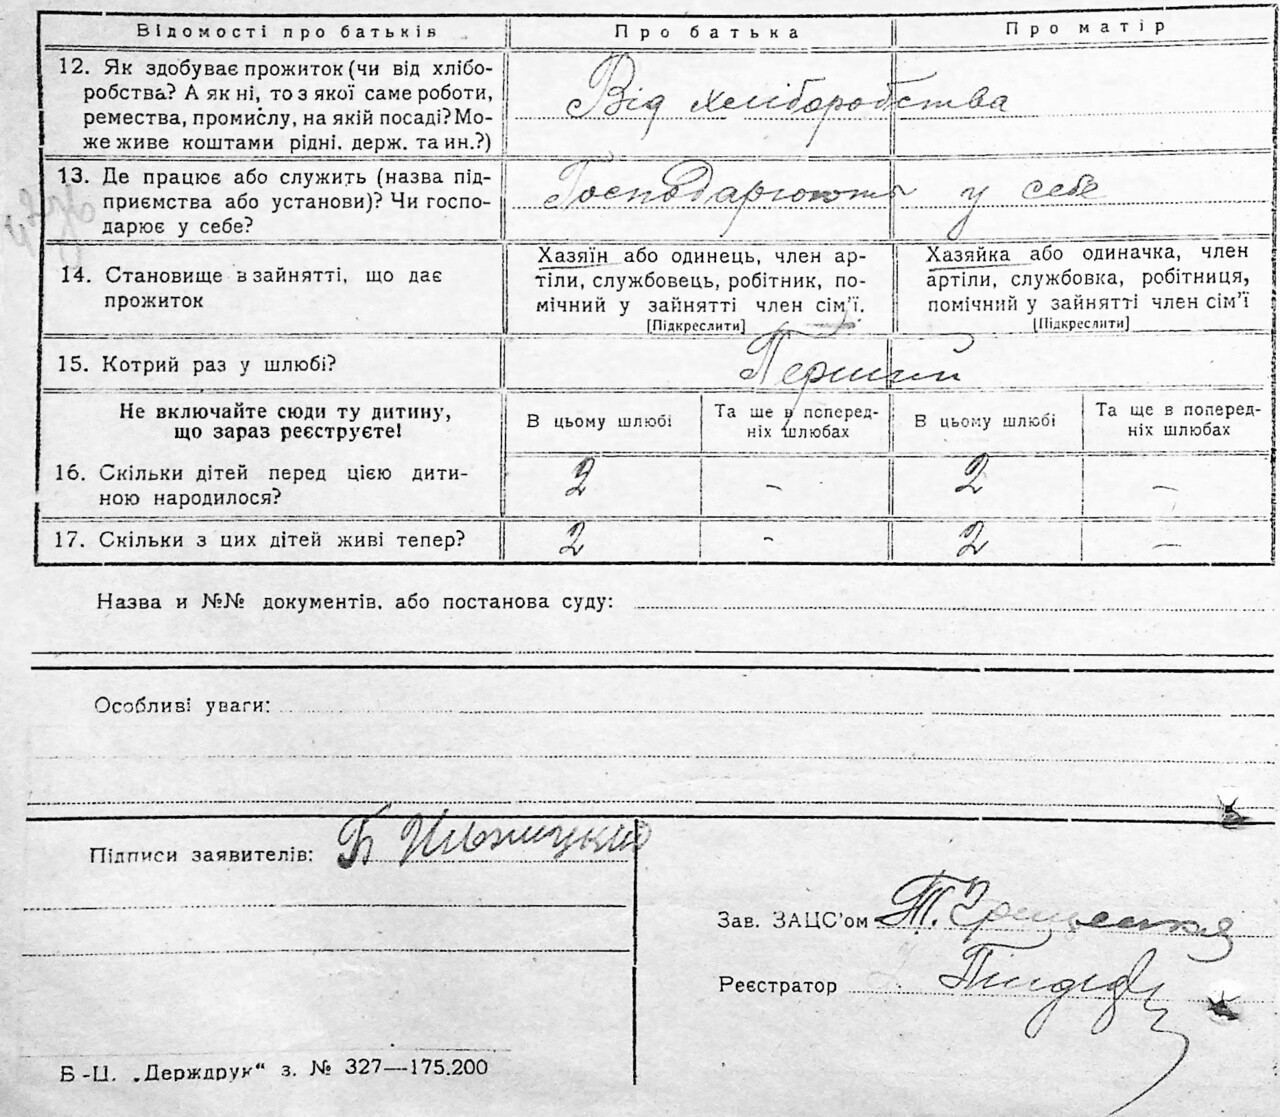 Відомості про батьків Про батька Про матір
12. Як здобуває прожиток (чи від хлібо-
робства? А як ні, то з якої саме роботи,
ремества, промислу, на якій посаді? Мо-
же живе коштами рідні. держ. та ин.?)
Від хліборобства
13. Де працює або служить (назва під-
приємства або установи)? Чи госпо-
дарює у себе?
Господарюють у себе
14. Становище в зайнятті, що дає
прожиток
Хазяїн або одинець, член ар-
тіли, службовець, робітник, по-
мічний у зайнятті член сім'ї.
[Підкреслити]
Хазяйка або одиначка, член
артіли, службовка, робітниця,
помічний у зайнятті член сім'ї
[Підкреслити]
15. Котрий раз у шлюбі?
Перший
Не включайте сюди ту дитину,
що зараз реєструєте!
В цьому шлюбі
Та ще в поперед-
ніх шлюбах
В цьому шлюбі
Та ще в поперед-
ніх шлюбах
16. Скільки дітей перед цією дити-
ною народилося?
2 - 2 -
17. Скільки з цих дітей живі тепер? 2 - 2 -
Назва и №№ документів. або постанова суду:
Особливі уваги:
Підписи заявителів: Б
Зав. ЗАЦС'ом Т.
Реєстратор
Б-Ц. „Держдрук“ з. № 327—175.200